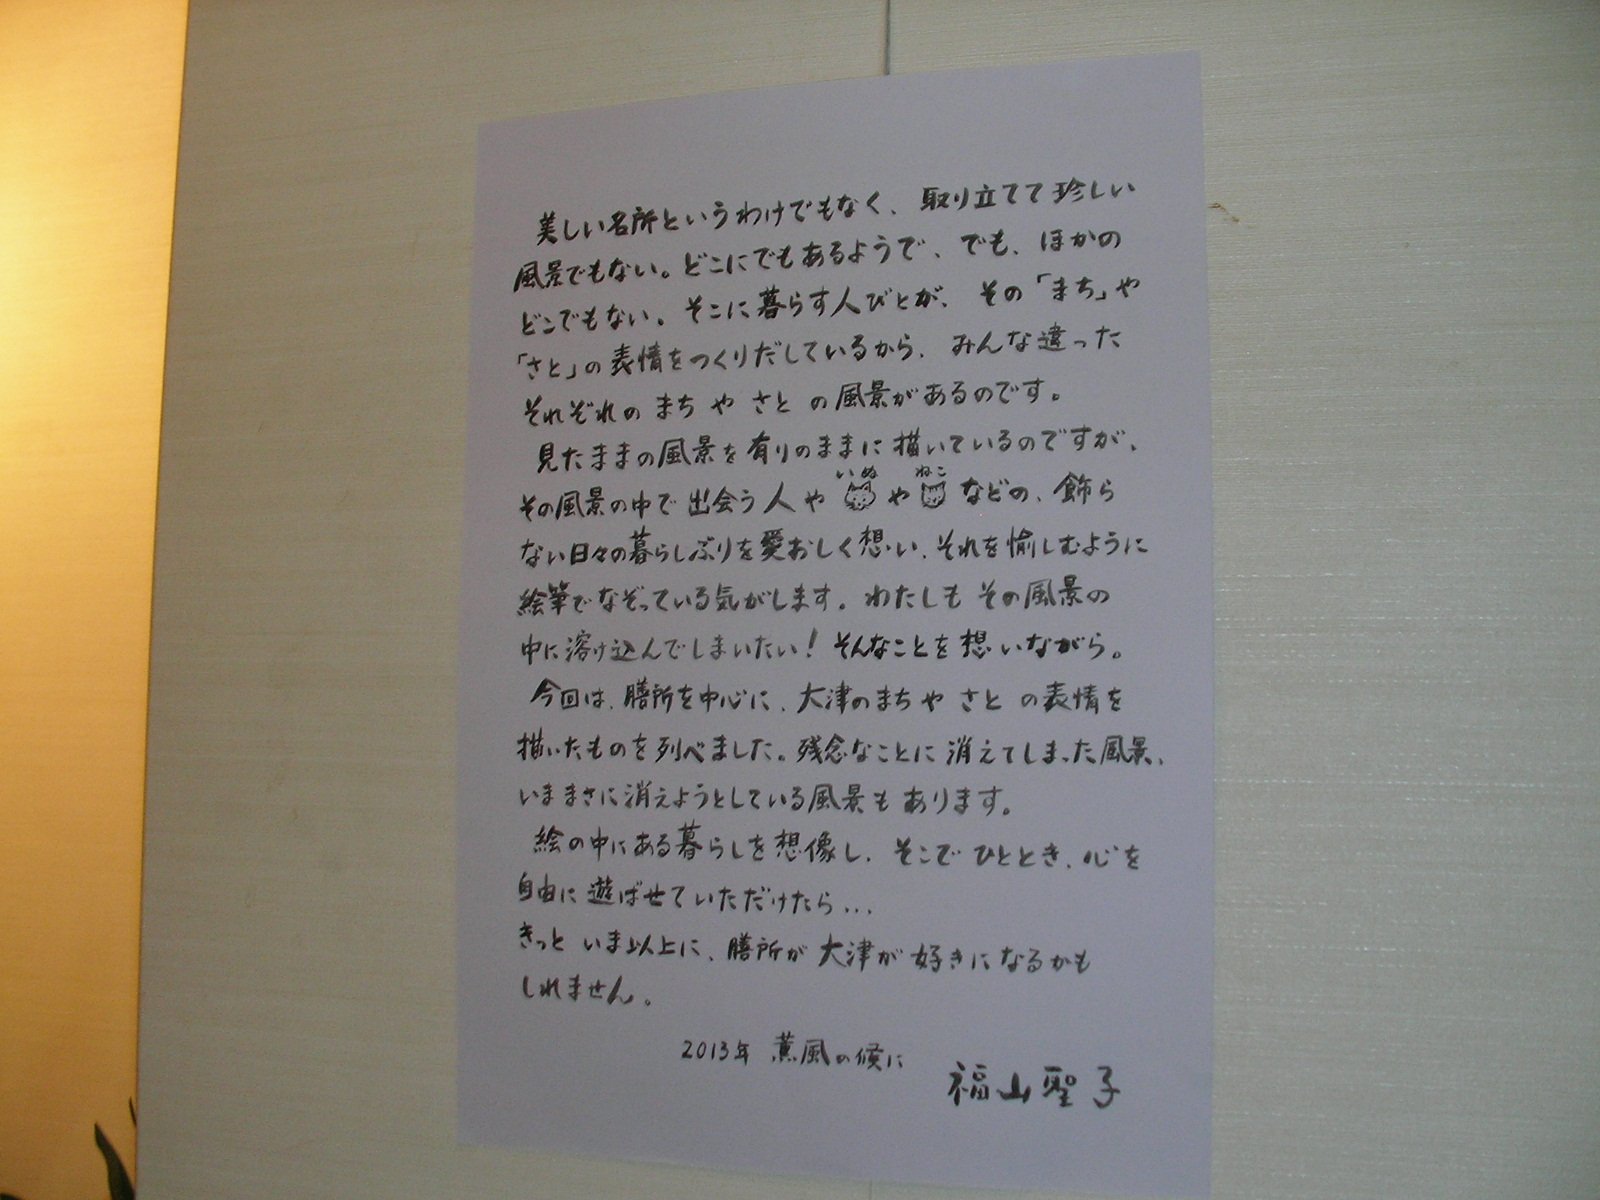 美しい名所というわけでもなく、取り立てて珍しい
風景でもない。どこにでもあるようで、でも、ほかの
どこでもない。そこに暮らす人びとが、その「まち」や
「さと」の表情をつくりだしているから、みんな違った
それぞれの まち や さと の風景があるのです。
見たままの風景を有りのままに描いているのですが、
いぬ ねこ
その風景の中で出会う人や や などの、飾ら
ない日々の暮らしぶりを愛おしく想い、それを愉しむように
絵筆でなぞっている気がします。わたしも その風景の
中に溶け込んでしまいたい！そんなことを想いながら。
今回は、膳所を中心に、大津のまちや さと の表情を
描いたものを列べました。残念なことに消えてしまった風景、
いままさに消えようとしている風景もあります。
絵の中にある暮らしを想像し、そこで ひととき、心を
自由に遊ばせていただけたら...
きっと いま以上に、膳所が大津が好きになるかも
しれません。
2013年 薫風の候に
福山聖子